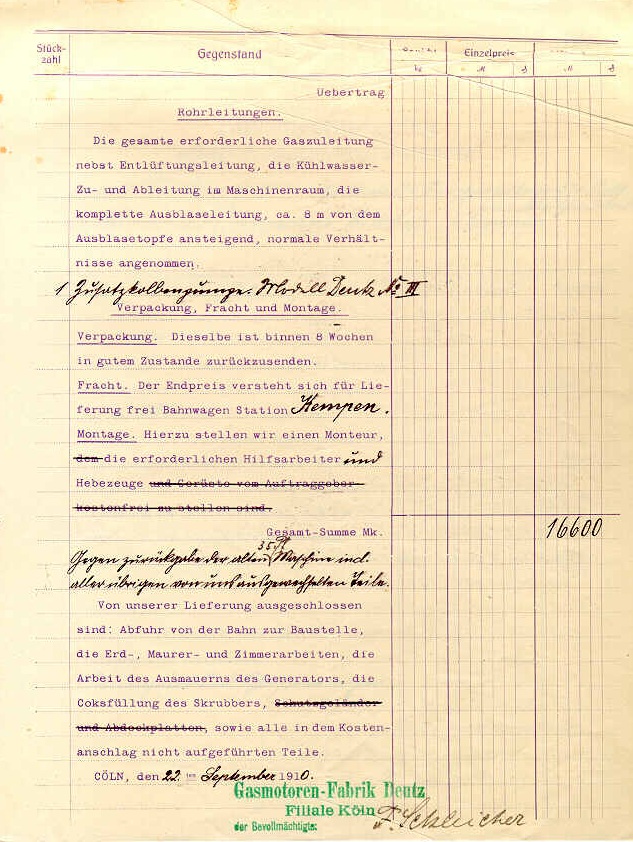 Stück-
zahl
Gegenstand
Einzelpreis
M
₰
M
₰
Uebertrag
Rohrleitungen.
Die gesamte erforderliche Gaszuleitung
nebst Entlüftungsleitung, die Kühlwasser-
Zu- und Ableitung im Maschinenraum, die
komplette Ausblaseleitung, ca. 8 m von dem
Ausblasetopfe ansteigend, normale Verhält-
nisse angenommen.
1 Zusatzkolbenpumpe. Modell Deutz No III
Verpackung, Fracht und Montage.
Verpackung. Dieselbe ist binnen 8 Wochen
in gutem Zustande zurückzusenden.
Fracht. Der Endpreis versteht sich für Lie-
ferung frei Bahnwagen Station Kempen.
Montage. Hierzu stellen wir einen Monteur,
dem die erforderlichen Hilfsarbeiter und
Hebezeuge und Gerüste vom Auftraggeber
kostenfrei zu stellen sind.
Gesamt-Summe Mk. 16600
Gegen zurückgabe der alten 35 Maschine incl.
aller übrigen von uns ausgewechselten Teile.
Von unserer Lieferung ausgeschlossen
sind: Abfuhr von der Bahn zur Baustelle,
die Erd-, Maurer- und Zimmerarbeiten, die
Arbeit des Ausmauerns des Generators, die
Coksfüllung des Skrubbers, Schutzgeländer
und Abdeckplatten, sowie alle in dem Kosten-
anschlag nicht aufgeführten Teile.
CÖLN, den 22 ten September 1910.
Gasmotoren-Fabrik Deutz
Filiale Köln
der Bevollmächtigte:
Schleicher